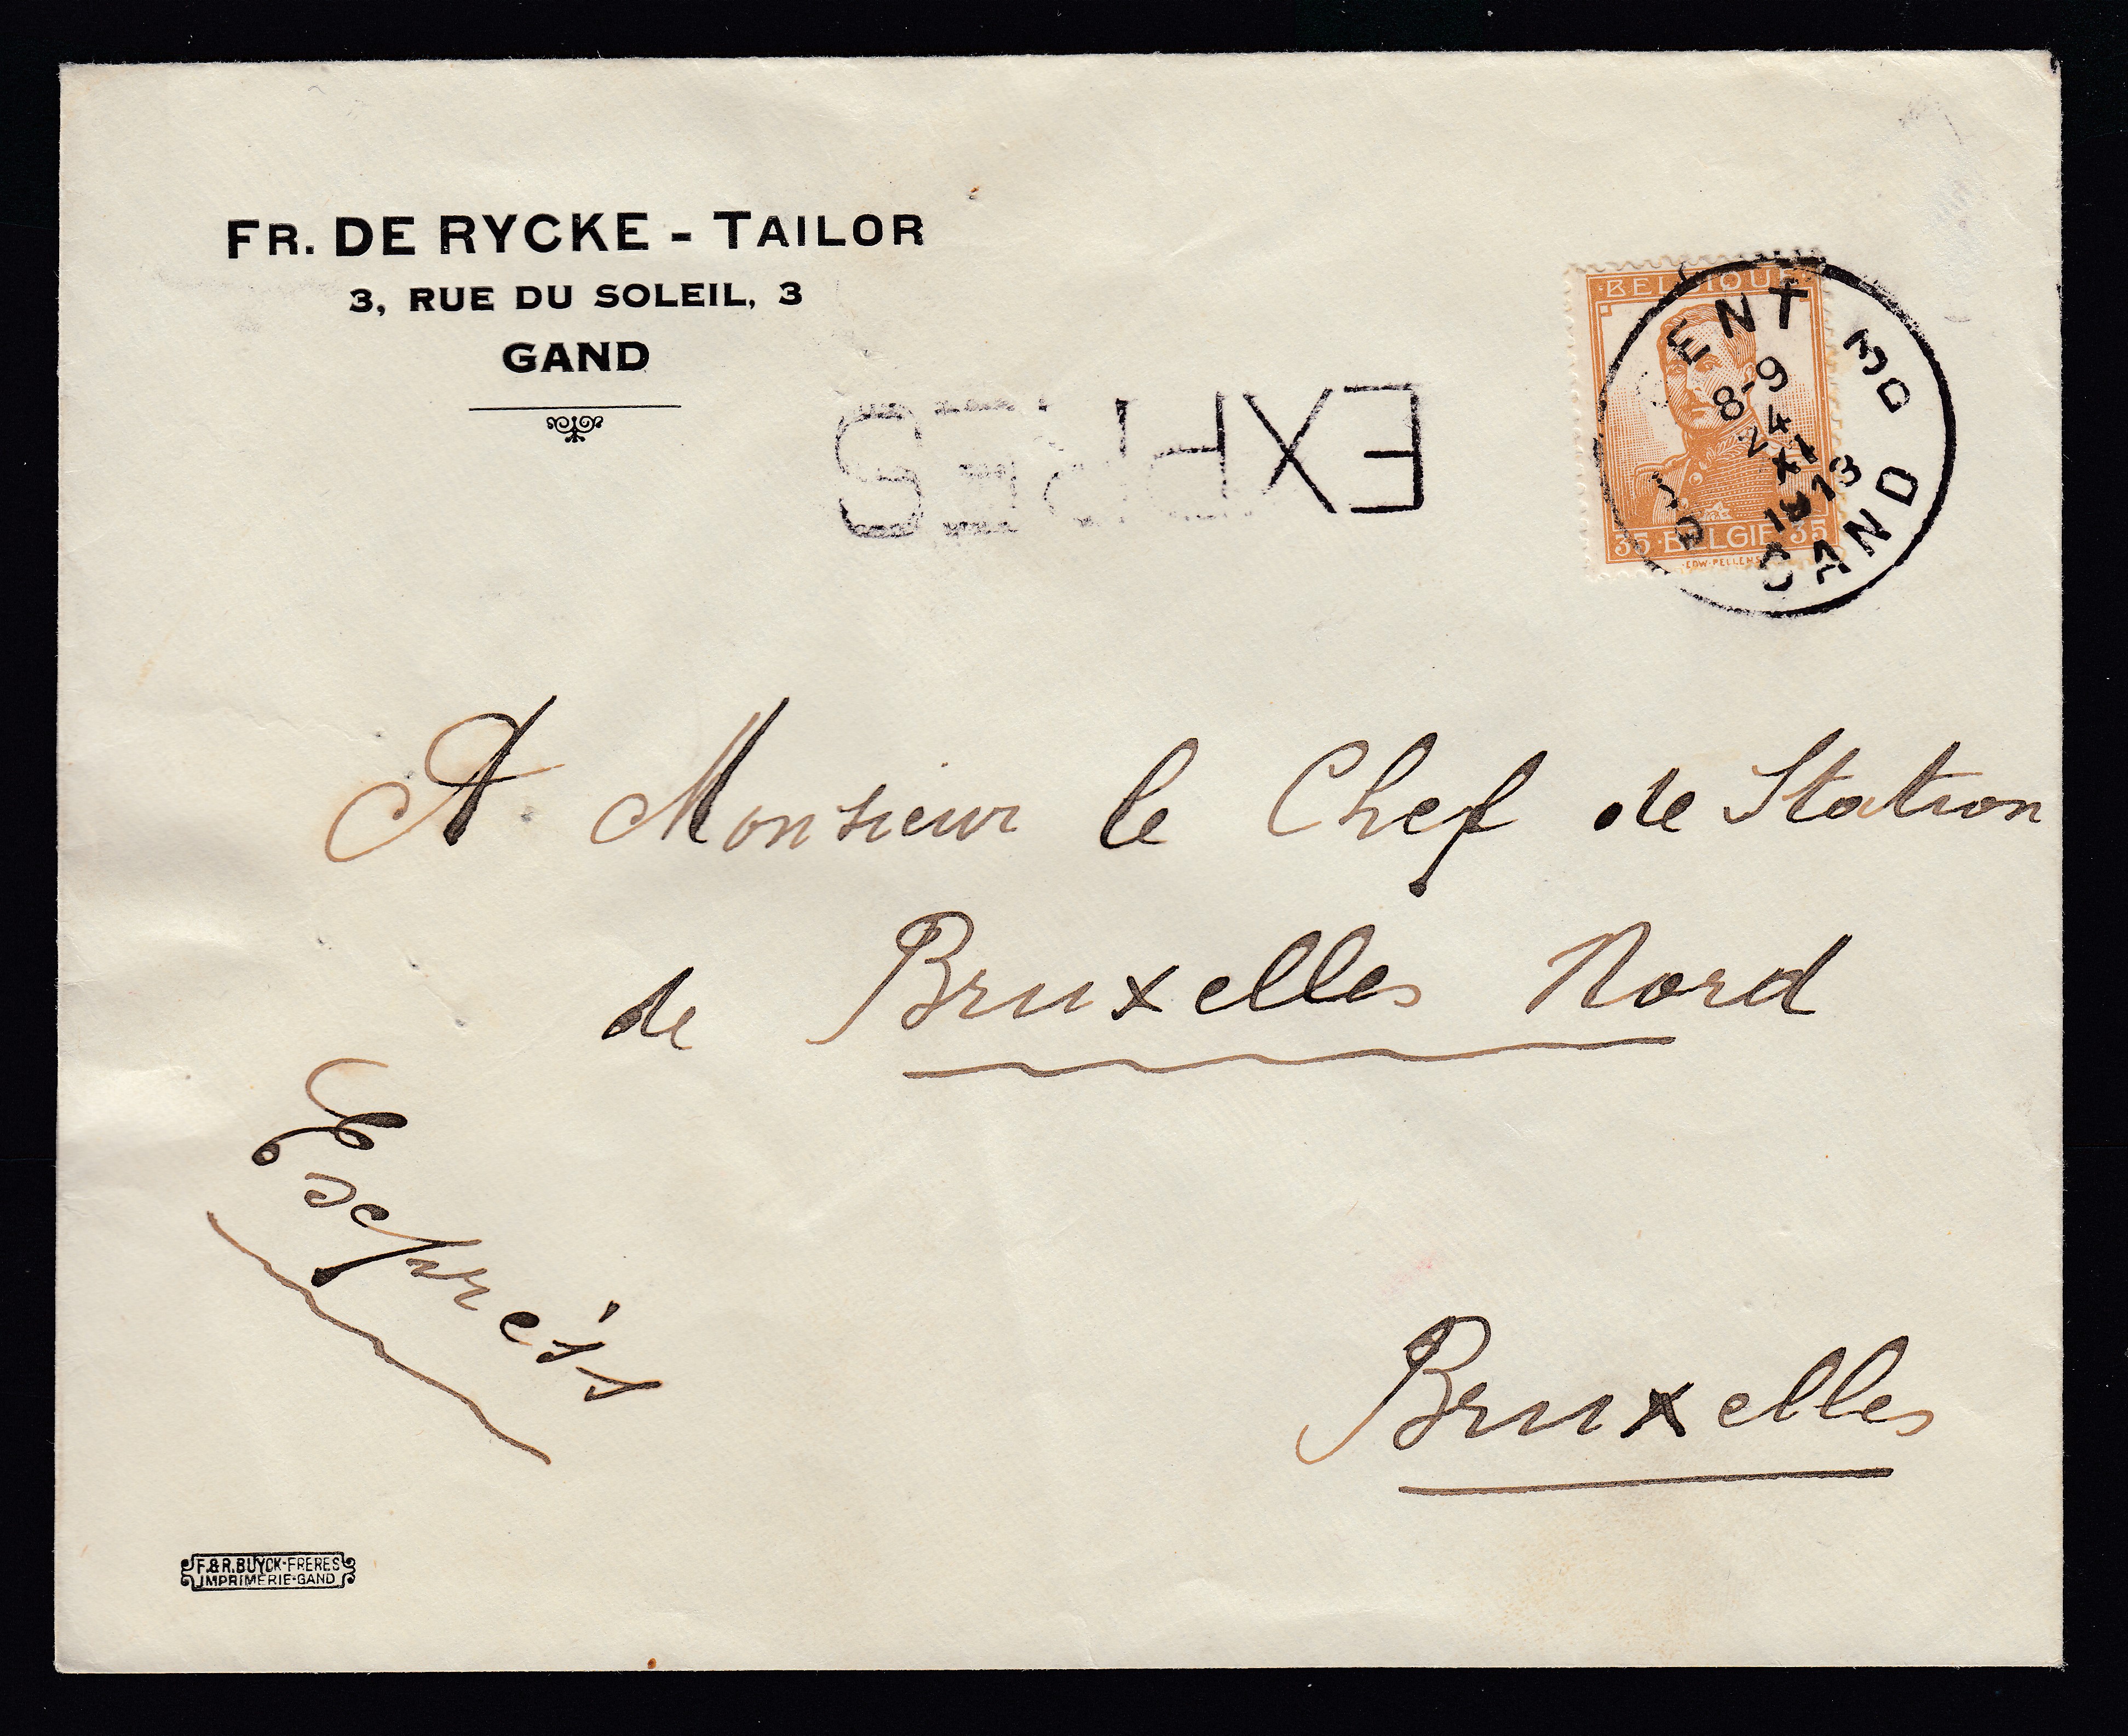 FR. DE RYCKE - TAILOR
3, RUE DU SOLEIL, 3
GAND
EXPRES
BELGIQUE
35 BELGIË 35
EDW·PELLENS
GENT 3D
8-9
24
XI
1913
GAND
A Monsieur le Chef de Station
de Bruxelles Nord
Expréss
Bruxelles
F.&R.BUYCK-FRERES
IMPRIMERIE-GAND